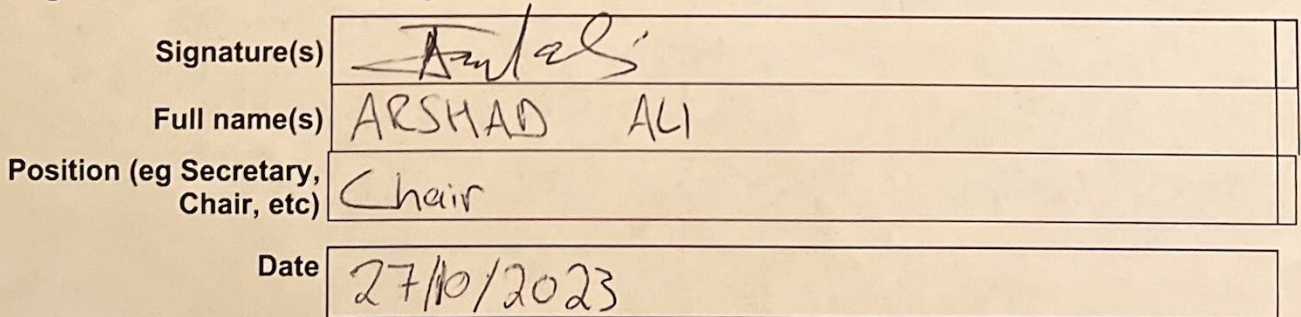 Signature(s)
Full name(s) ARSHAD ALI
Position (eg Secretary,
Chair, etc) Chair
Date 27/10/2023